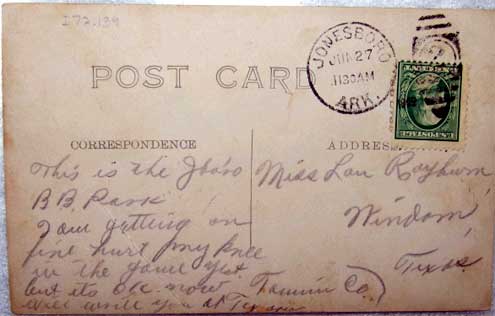 I72.139
POST CARD
JONESBORO
JUN 27
1130AM
ARK.
CORRESPONDENCE
This is the Jboro
B.B. Park
I am getting on
fine hurt my knee
in the game yest
but its O.K. now
will write you at
ADDRESS
Miss Lou Rayburn
Windom,
Texas
Fannin Co.